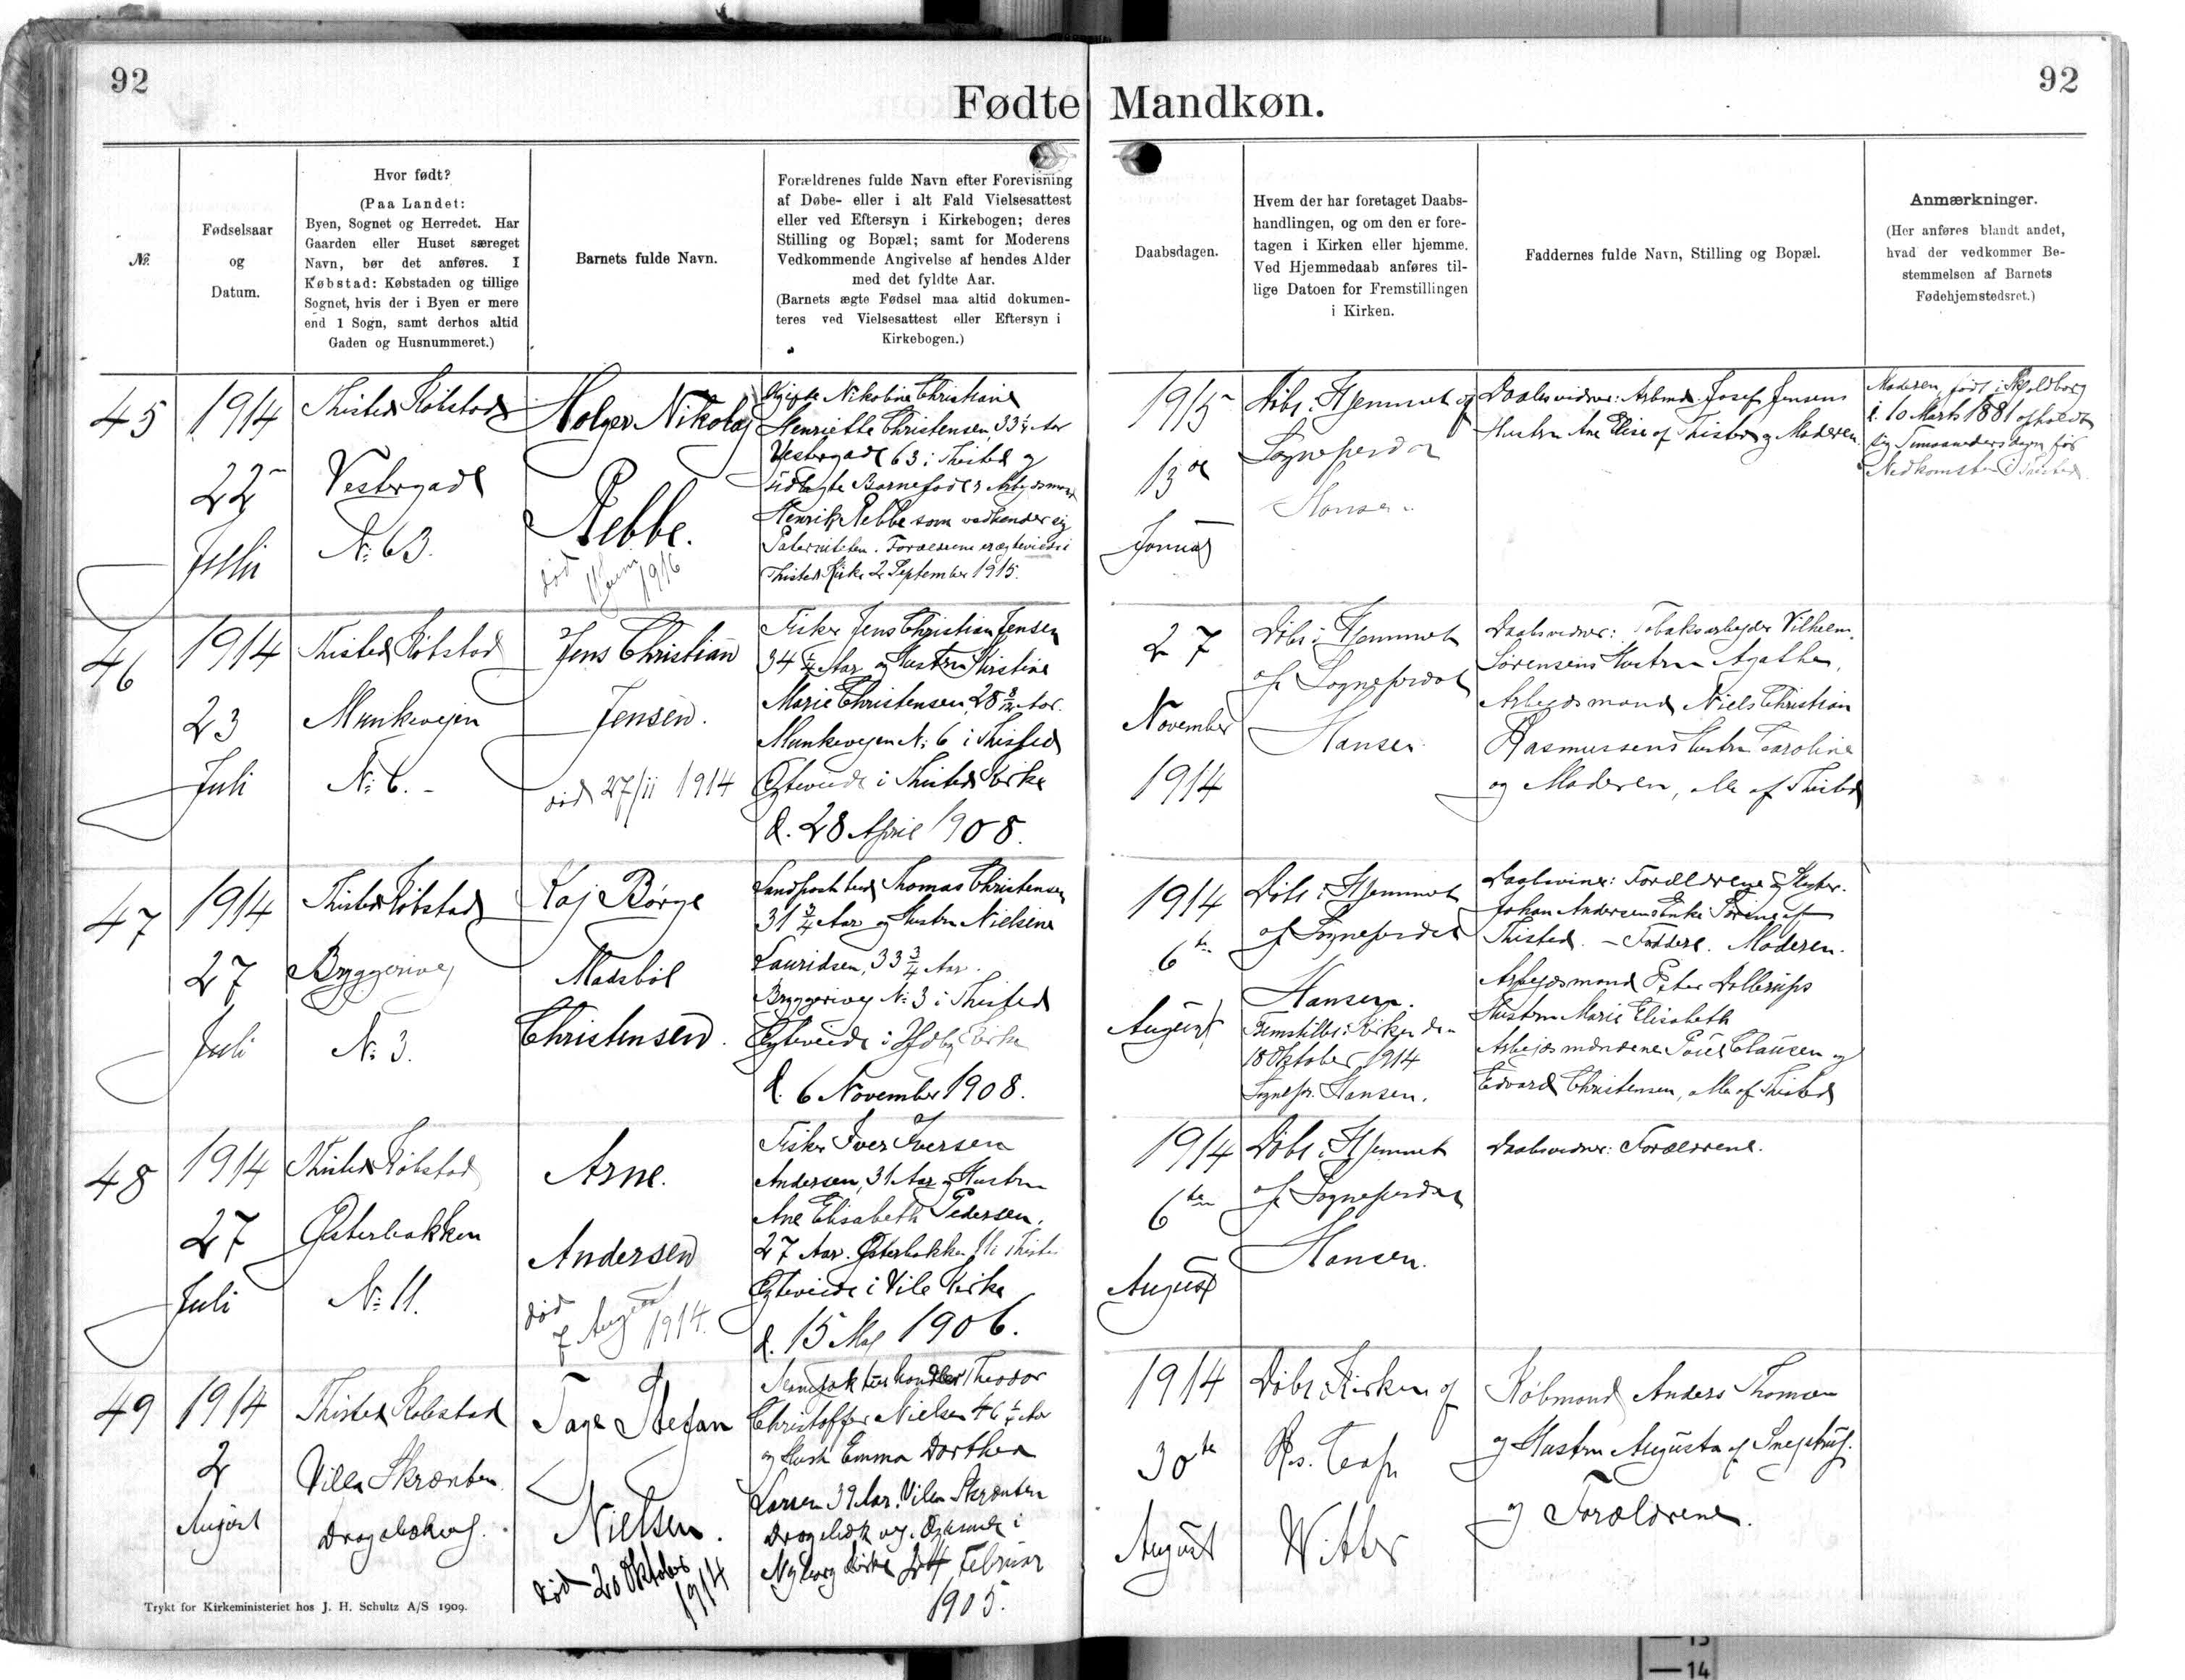 92
92
Fødte Mandkøn.
№.
Fødselsaar
og
Datum.
Hvor født?
(Paa Landet:
Byen, Sognet og Herredet. Har
Gaarden eller Huset særeget
Navn, bør det anføres. I
Købstad: Købstaden og tillige
Sognet, hvis der i Byen er mere
end 1 Sogn, samt derhos altid
Gaden og Husnummeret.)
Barnets fulde Navn.
Forældrenes fulde Navn efter Forevisning
af Døbe- eller i alt Fald Vielsesattest
eller ved Eftersyn i Kirkebogen; deres
Stilling og Bopæl; samt for Moderens
Vedkommende Angivelse af hendes Alder
med det fyldte Aar.
(Barnets ægte Fødsel maa altid dokumen-
teres ved Vielsesattest eller Eftersyn i
Kirkebogen.)
Daabsdagen.
Hvem der har foretaget Daabs-
handlingen, og om den er fore-
tagen i Kirken eller hjemme.
Ved Hjemmedaab anføres til-
lige Datoen for Fremstillingen
i Kirken.
Faddernes fulde Navn, Stilling og Bopæl.
Anmærkninger.
(Her anføres blandt andet,
hvad der vedkommer Be-
stemmelsen af Barnets
Fødehjemstedsret.)
45
1914
22
Juli
Thisted Købstad
Vestergade
N: 63.
Holger Nikolaj
Rebbe.
død
1916
Ugifte Nikoline Christiane
Henriette Christensen, 33 1/4 Aar
Vestergade 63 i Thisted og
udlagte Barnefader Arbejdsmand
Henrik Rebbe som vedkender sig
Paterniteten. Forældrene er ægteviede i
Thisted Kirke 2 September 1915.
1915
13de
Januar
Døbt i Hjemmet af
Sognepræst
Hansen
Daabsvidner: Arbmd. Josef Jensens
Hustru Ane Elise af Thisted og Moderen.
Moderen født i Skjoldborg
d. 10 Marts 1881 opholdt
sig Timaanedersdagen før
Nedkomsten i Thisted.
46
1914
23
Juli
Thisted Købstad
Munkevejen
N: 6. -
Jens Christian
Jensen.
død 27/11 1914
Fisker Jens Christian Jensen
34 1/4 Aar og Hustru Kirstine
Marie Christensen, 28 Aar.
Munkevejen N: 6 i Thisted
Ægteviede i Thisted Kirke
d. 28 April 1908.
27
November
1914
Døbt i Hjemmet
af Sognepræst
Hansen
Daabsvidner: Tobaksarbejder Vilhelm
Sørensens Hustru Agathe,
Arbejdsmand Niels Christian
Rasmussens Hustru Caroline
og Moderen, alle af Thisted
47
1914
27
Juli
Thisted Købstad
Bryggerivej
N: 3.
Kaj Børge
Madsbøl
Christensen.
Landpostbud Thomas Christensen
31 3/4 Aar og Hustru Nielsine
Lauridsen, 33 3/4 Aar.
Bryggerivej N: 3 i Thisted
Ægteviede i Kirke
d. 6 November 1908.
1914
6te
August
Døbt i Hjemmet
af Sognepræst
Hansen.
Fremstillet i Kirken den
18 Oktober 1914
Sognepr. Hansen.
Daabsvidner: Forældrene og
Johan Andersens Enke af
Thisted. - Faddere. Moderen.
Arbejdsmand Peter Dollerups
Hustru Marie Elisabeth
Arbejdsmændene Poul Clausen og
Edvard Christensen, alle af Thisted
48
1914
27
Juli
Thisted Købstad
Østerbakken
N: 11.
Arne.
Andersen
død
7 August 1914.
Fisker Iver Iversen
Andersen, 31 Aar og Hustru
Ane Elisabeth Pedersen,
27 Aar. Østerbakken 11 i Thisted
Ægteviede i Vile Kirke
d. 15 Maj 1906.
1914
6te
August
Døbt i Hjemmet
af Sognepræst
Hansen.
Daabsvidner: Forældrene.
49
1914
2
August
Thisted Købstad
Villa Skrænten
Dragsbækvej.
Tage Stefan
Nielsen.
død 20 Oktober
1914
Manufakturhandler Theodor
Christoffer Nielsen 46 1/4 Aar
og Hustr Emma Dorthea
Larsen 39 Aar. Villa Skrænten
Dragsbækvej. Ægteviede i
Nyborg Kirke Februar
1905.
1914
30te
August
Døbt i Kirken af
Res. Cap.
Witter
Købmand Anders Thomsen
og Hustru Augusta af Snejstrup.
og Forældrene.
Trykt for Kirkeministeriet hos J. H. Schultz A/S 1909.
13
14